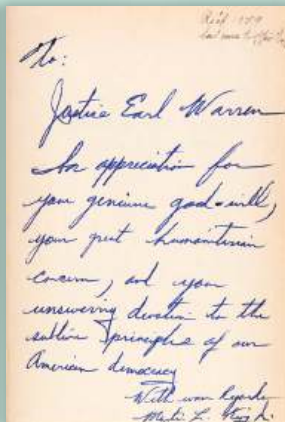 To:
Justice Earl Warren
In appreciation for
your genuine good-will,
your great humanitarian
concern, and your
unswerving devotion to the
sublime principles of our
American democracy
With warm Regards
Martin L. King Jr.